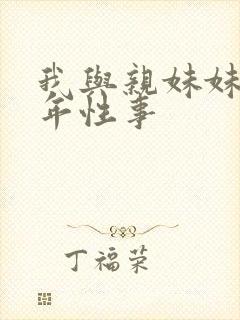 我與親妹妹
年性事
丁福荣